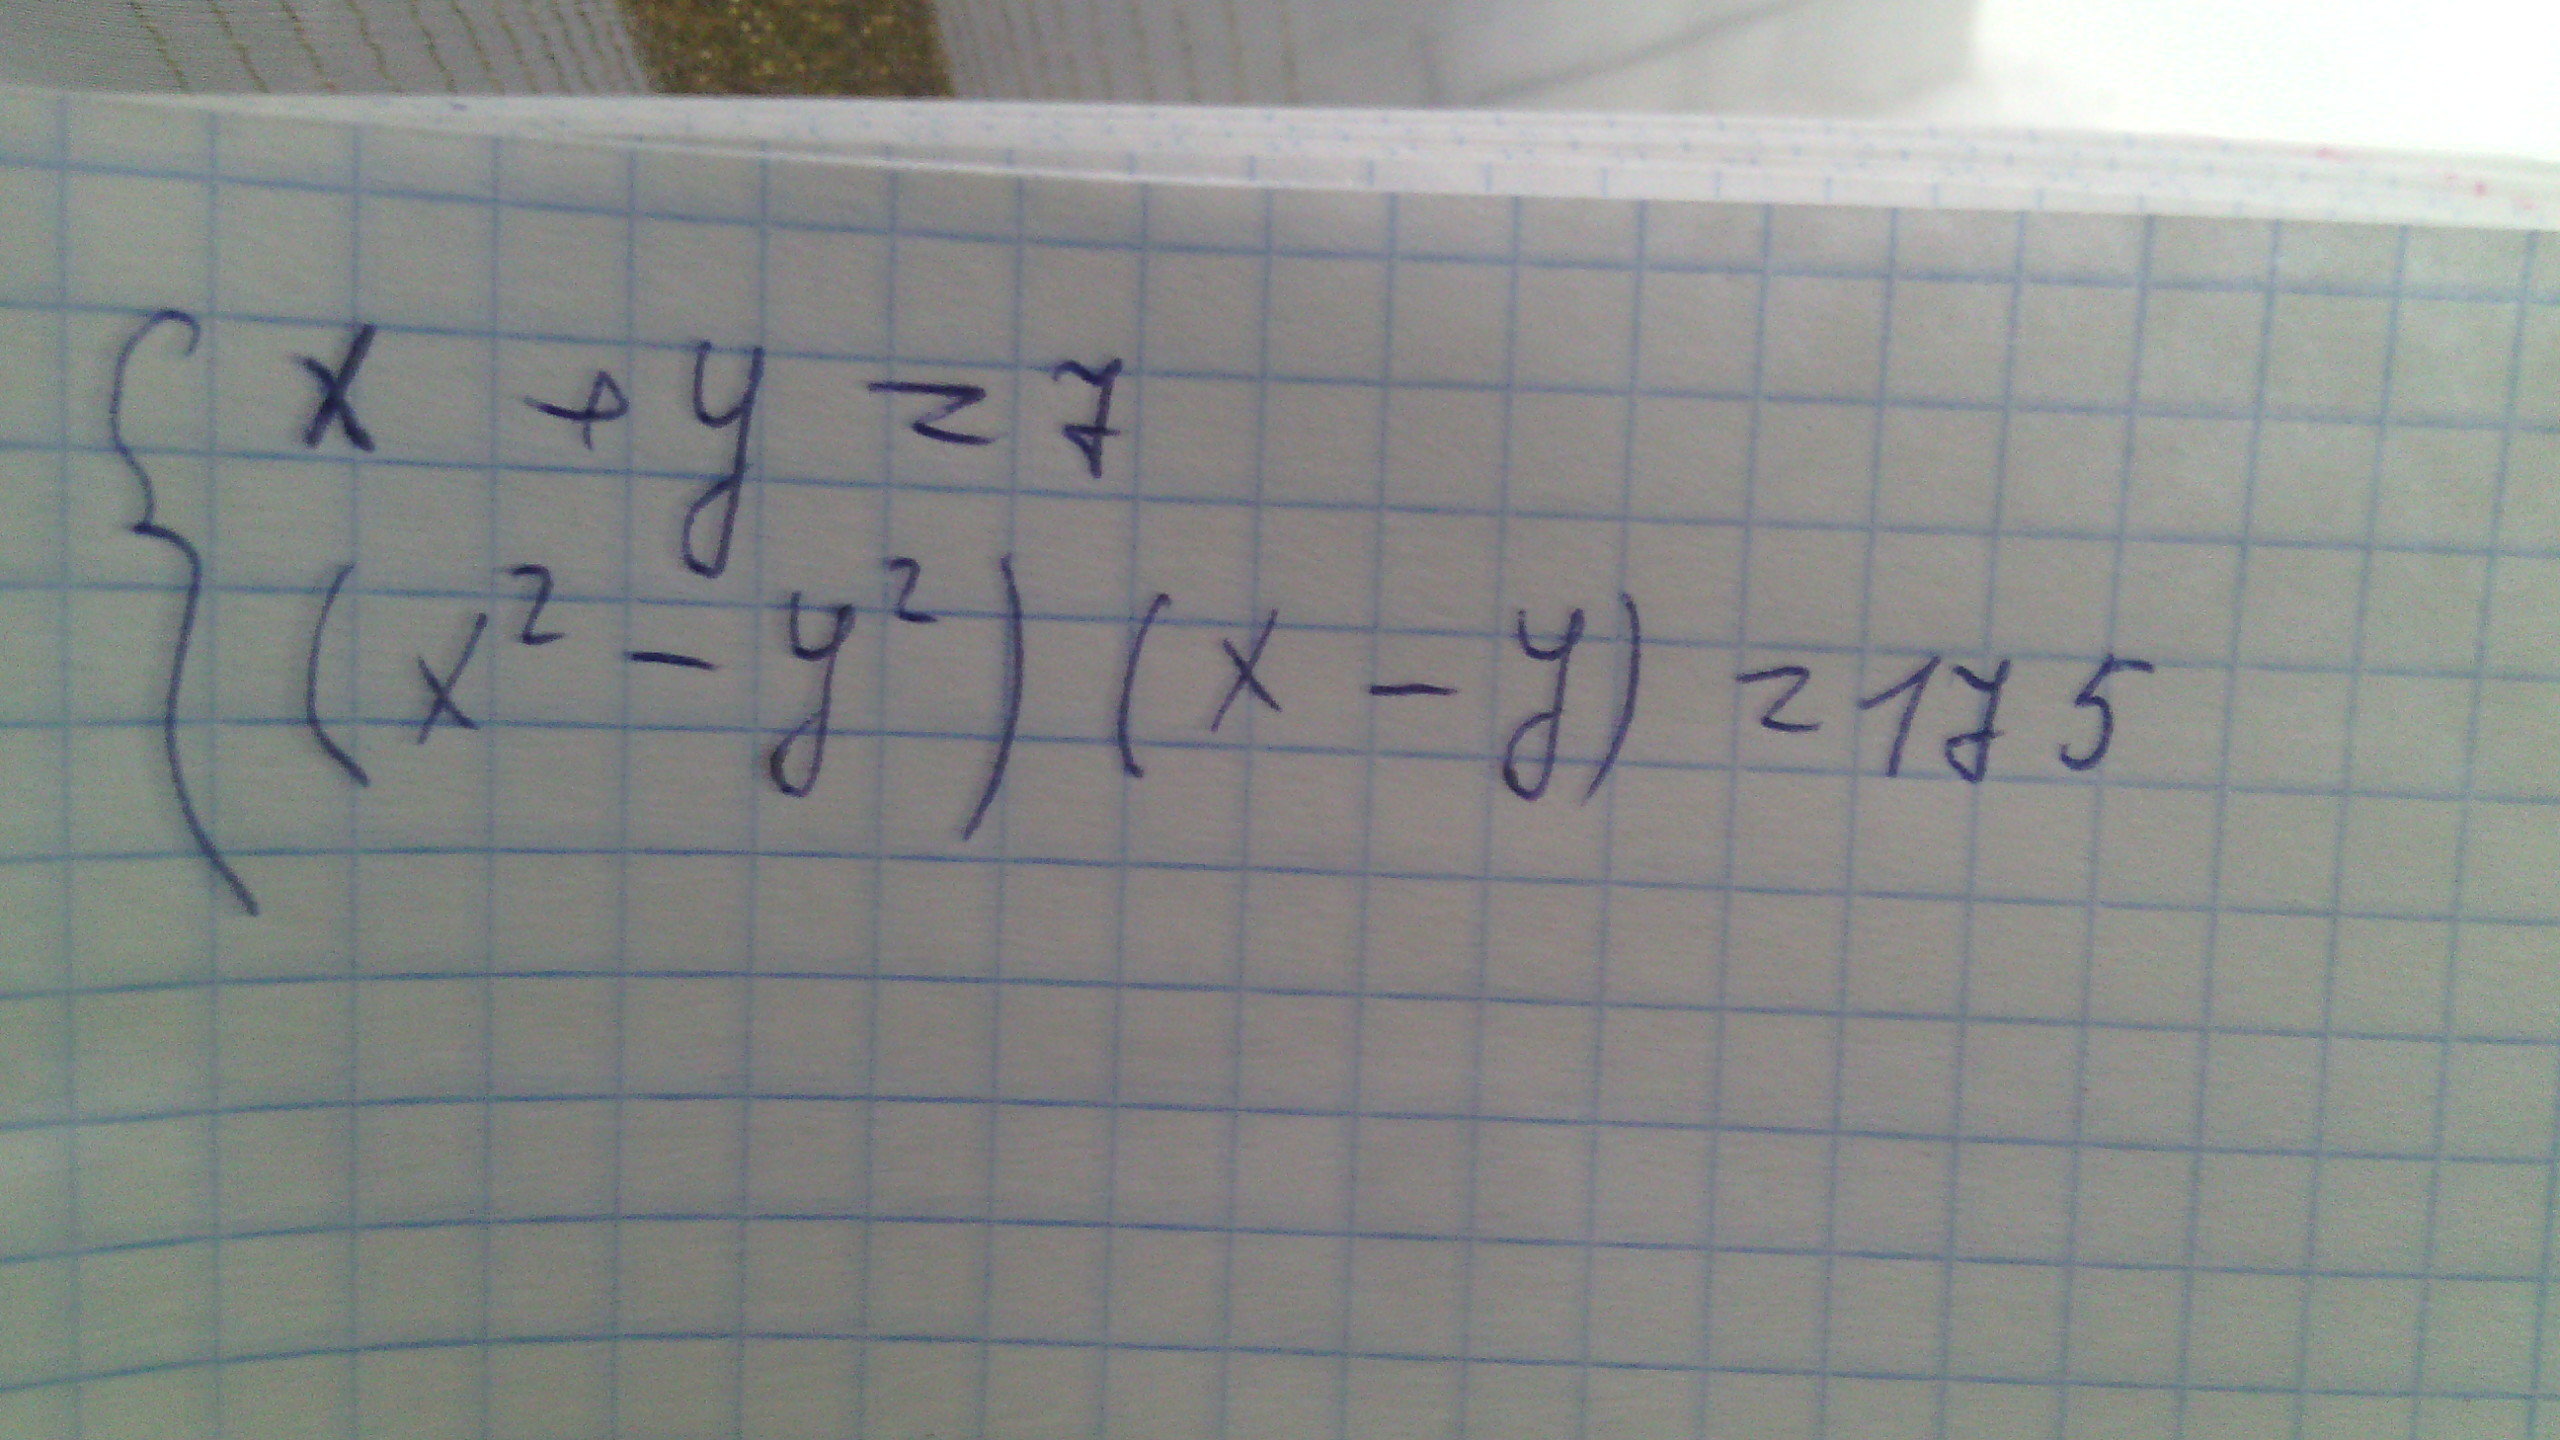 x + y = 7
(x² - y²) (x - y) = 175